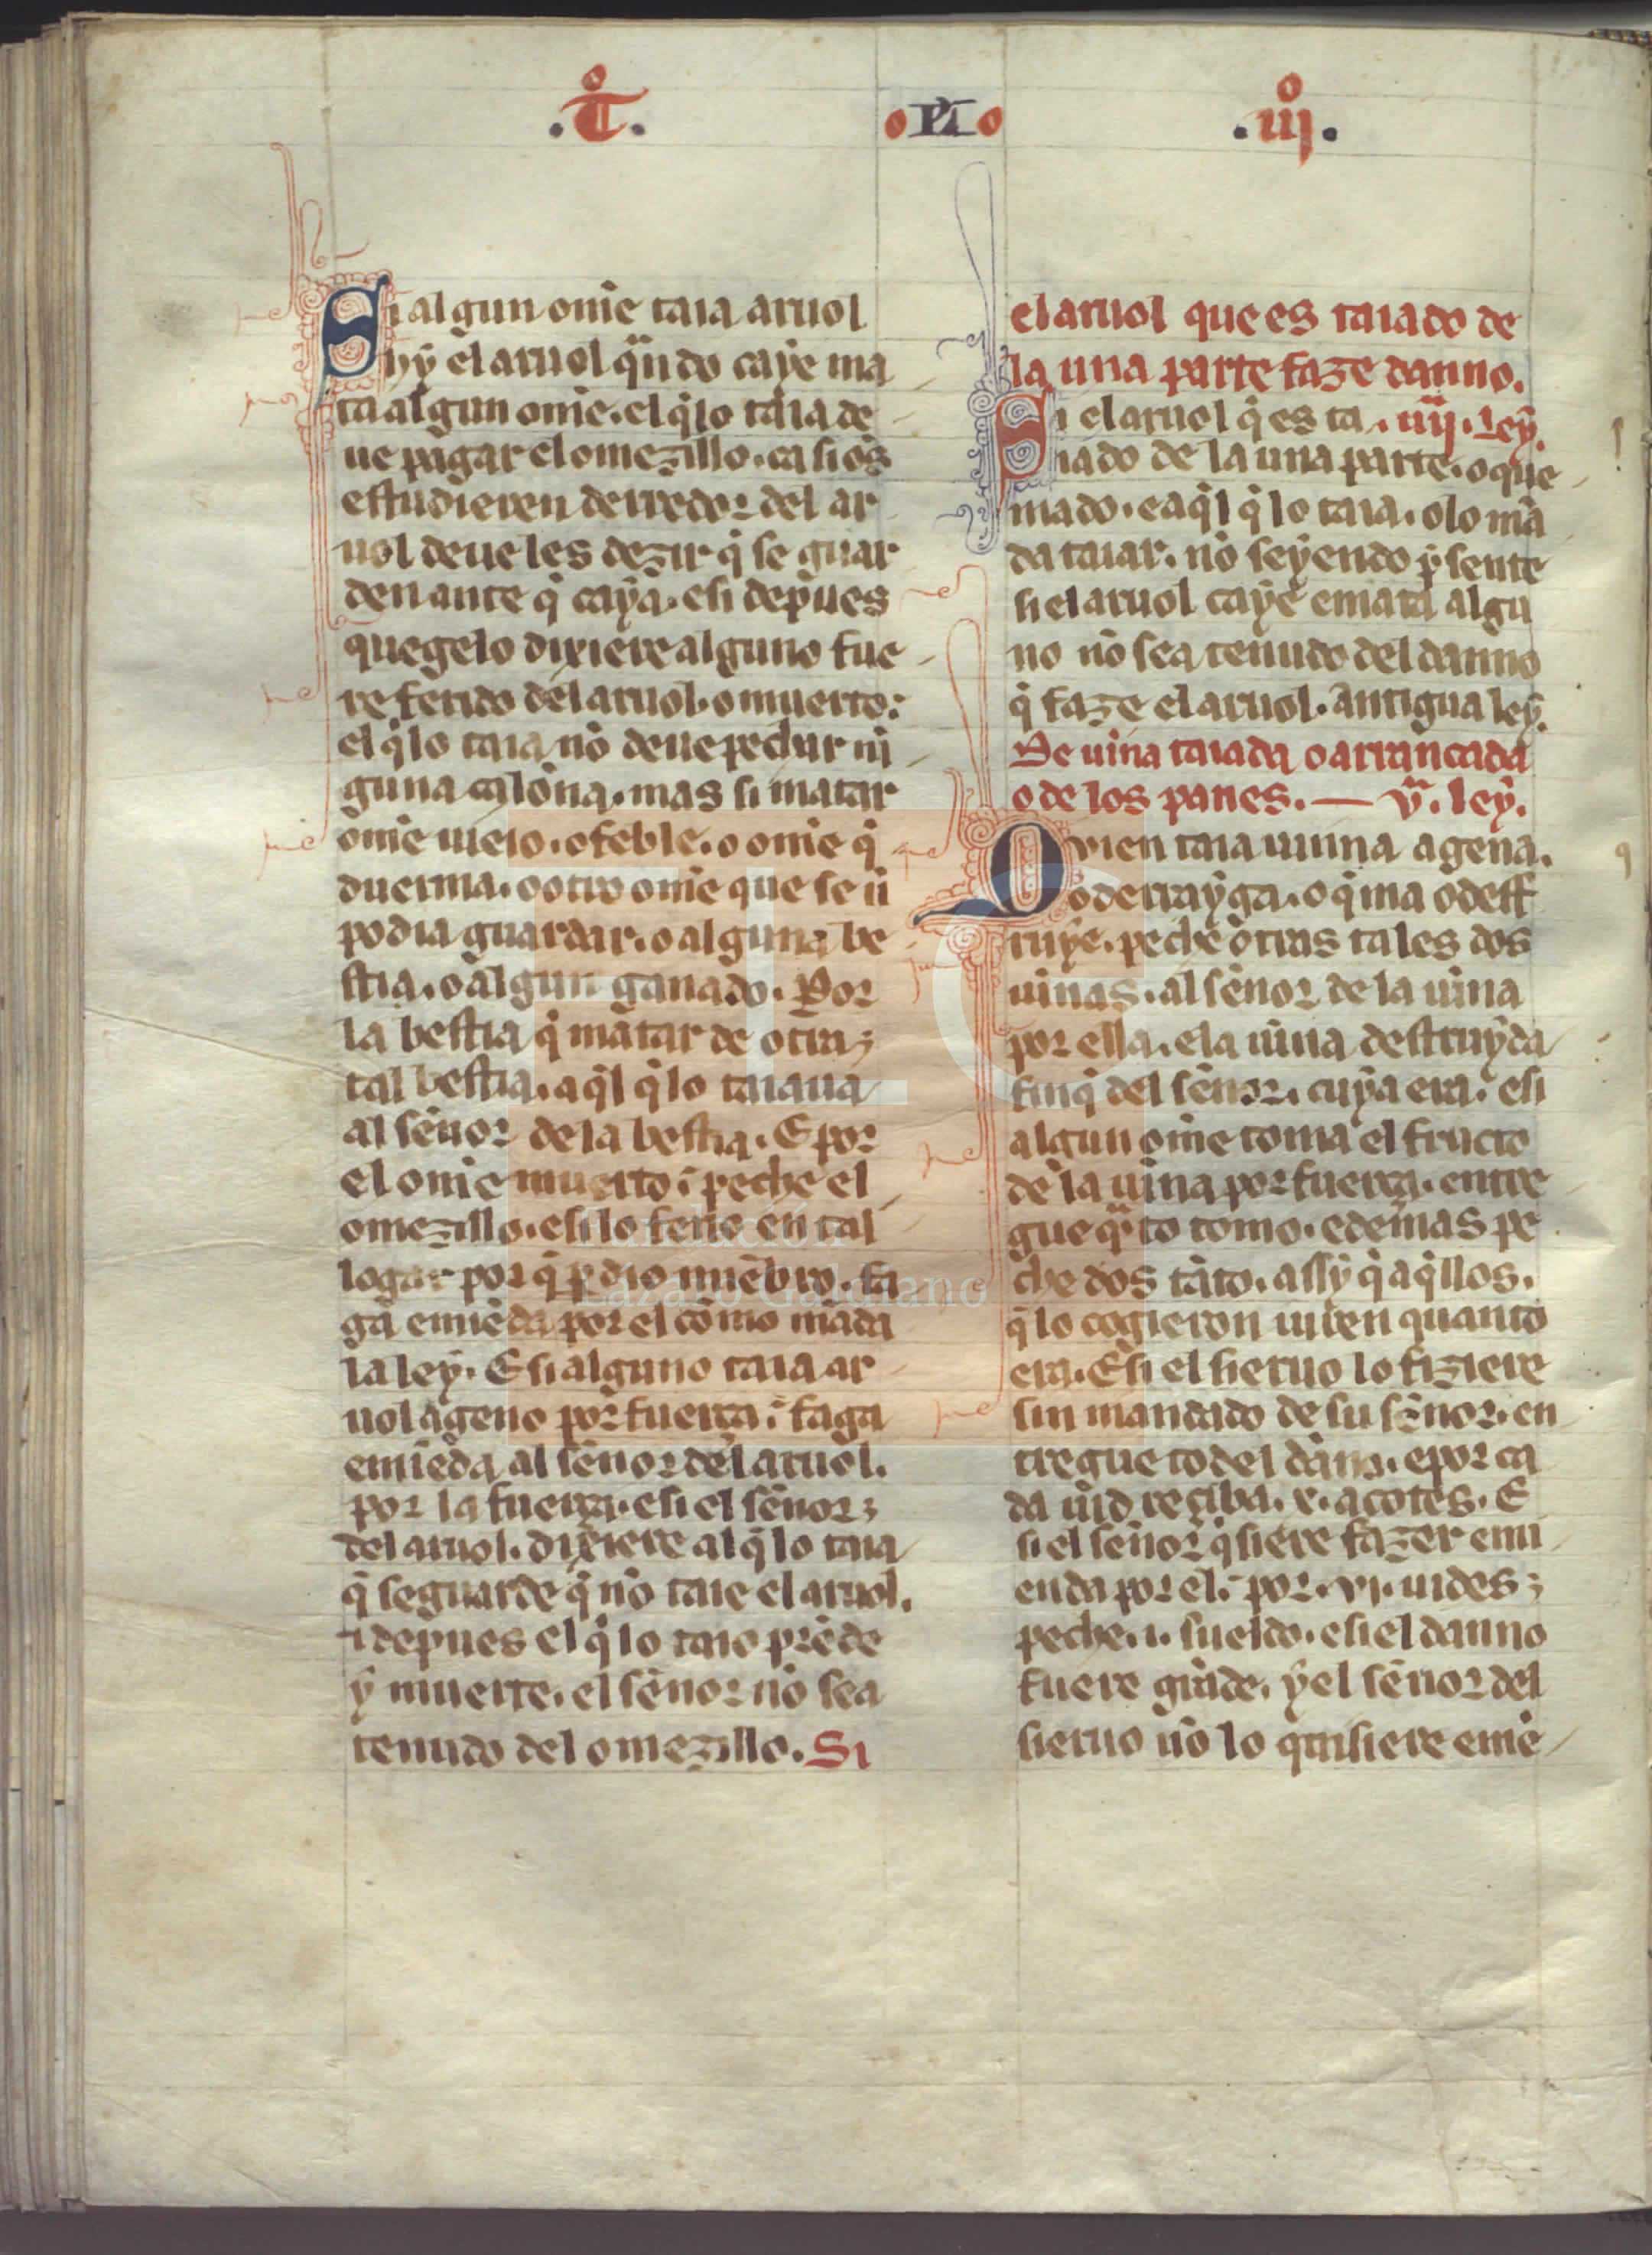 .T̊.
PI
.iij̊.
Si algun om̃e taia aruol
hy el aruol qͣndo caye ma
ta algun om̃e. el q̃ lo taia de
ue pagar el omezillo. ca si os̃
estudieren derredor del ar
uol deueles dezir q̃ se guar
den ante q̃ caya. e si depues
que gelo dixiere alguno fue
re ferido del aruol. o muerto:
el q̃ lo taia nõ deue pechar nĩ
guna calõna. mas si matar
om̃e uieio. o feble. o om̃e q̃
duerma. o otro om̃e que se ñ
podia guardar. o alguna be
stia. o algun ganado. Por
la bestia q̃ matar de otra;
tal bestia. aq̃l q̃ lo taiaua
al sẽnor de la bestia. E por
el om̃e muerto: peche el
omezillo. e si lo ferio en tal
logar por q̃ p̃dio miẽbro. fa
gã emiẽda por el cõmo mãda
la ley. E si alguno taia ar
uol ageno por fuerça: faga
emiẽda al sẽnor del aruol.
por la fuerça. e si el sẽnor;
del aruol. dixiere al q̃ lo taia
q̃ se guarde q̃ nõ taie el aruol.
i depues el q̃ lo taio prẽde
y muerte. el sẽnor nõ sea
tenudo del omezillo. Si
el aruol que es taiado de
la una parte faze danno.
Si el aruol q̃ es ta .iiijͣ. Ley.
iado de la una parte. o que
mado. e aq̃l q̃ lo taia. o lo mã
da taiar. nõ seyendo p̃sente
si el aruol caye e mata algu
no nõ sea tenudo del danno
q̃ faze el aruol. antigua ley.
De uina taiada o arrancada
o de los panes. — vͣ. ley.
Qvien taia uinna agena.
o derrayga. o q̃ma o dest
ruye. peche otras tales dos
uinas. al sẽnor de la uina
por ella. e la uina destruyda
finq̃ del sẽnor. cuya era. e si
algun om̃e toma el fructo
de la uina por fuerça. entre
gue qͣto tomo. e demas pe
che dos tãto. assy q̃ aq̃llos.
q̃ lo cogieron iuren quanto
era. E si el sieruo lo fiziere
sin mandado de su sẽnor. en
tregue todel dãno. e por ca
da uid reçiba. x. açotes. E
si el señor q̃siere fazer emi
enda por el. por. vi. uides;
peche. i. sueldo. e si el danno
fuere grãde. y el sẽnor del
sieruo nõ lo quisiere emẽ
Fundación
Lázaro Galdiano